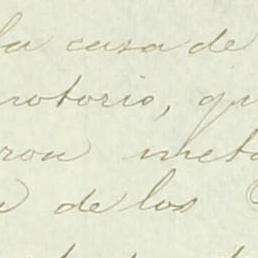 la casa de
notorio, qu
ron meta
de los